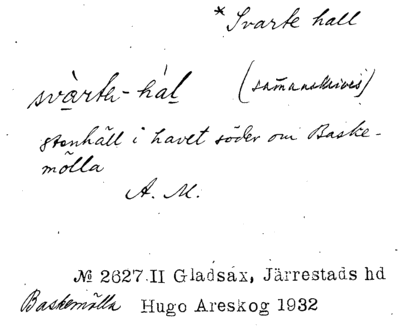 * Svarte hall
svàrtə-hàl (samanskrives)
stenhäll i havet söder om Baske-
mölla
A. M.
№ 2627.II Gladsax, Järrestads hd
Baskemölla Hugo Areskog 1932